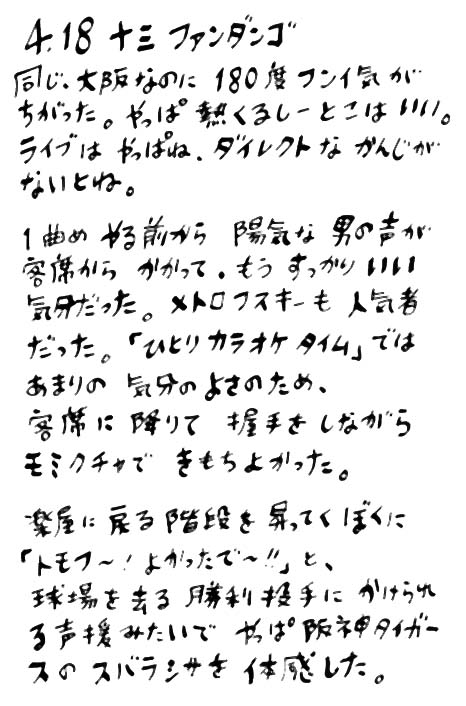 4.18 十三 ファンダンゴ
同じ、大阪なのに 180度 フンイ気が
ちがった。やっぱ 熱くるしーとこは いい。
ライブは やっぱね、ダイレクトな かんじが
ないとね。
1曲め やる前から 陽気な 男の声が
客席から かかって、もう すっかり いい
気分だった。メトロフスキーも 人気者
だった。「ひとりカラオケタイム」では
あまりの 気分のよさのため、
客席に 降りて 握手をしながら
モミクチャで きもちよかった。
楽屋に 戻る 階段を 昇ってく ぼくに
「トモフ〜！よかったで〜!!」と、
球場を去る 勝利投手に かけられ
る声援みたいで やっぱ 阪神タイガー
スの スバラシサを 体感した。